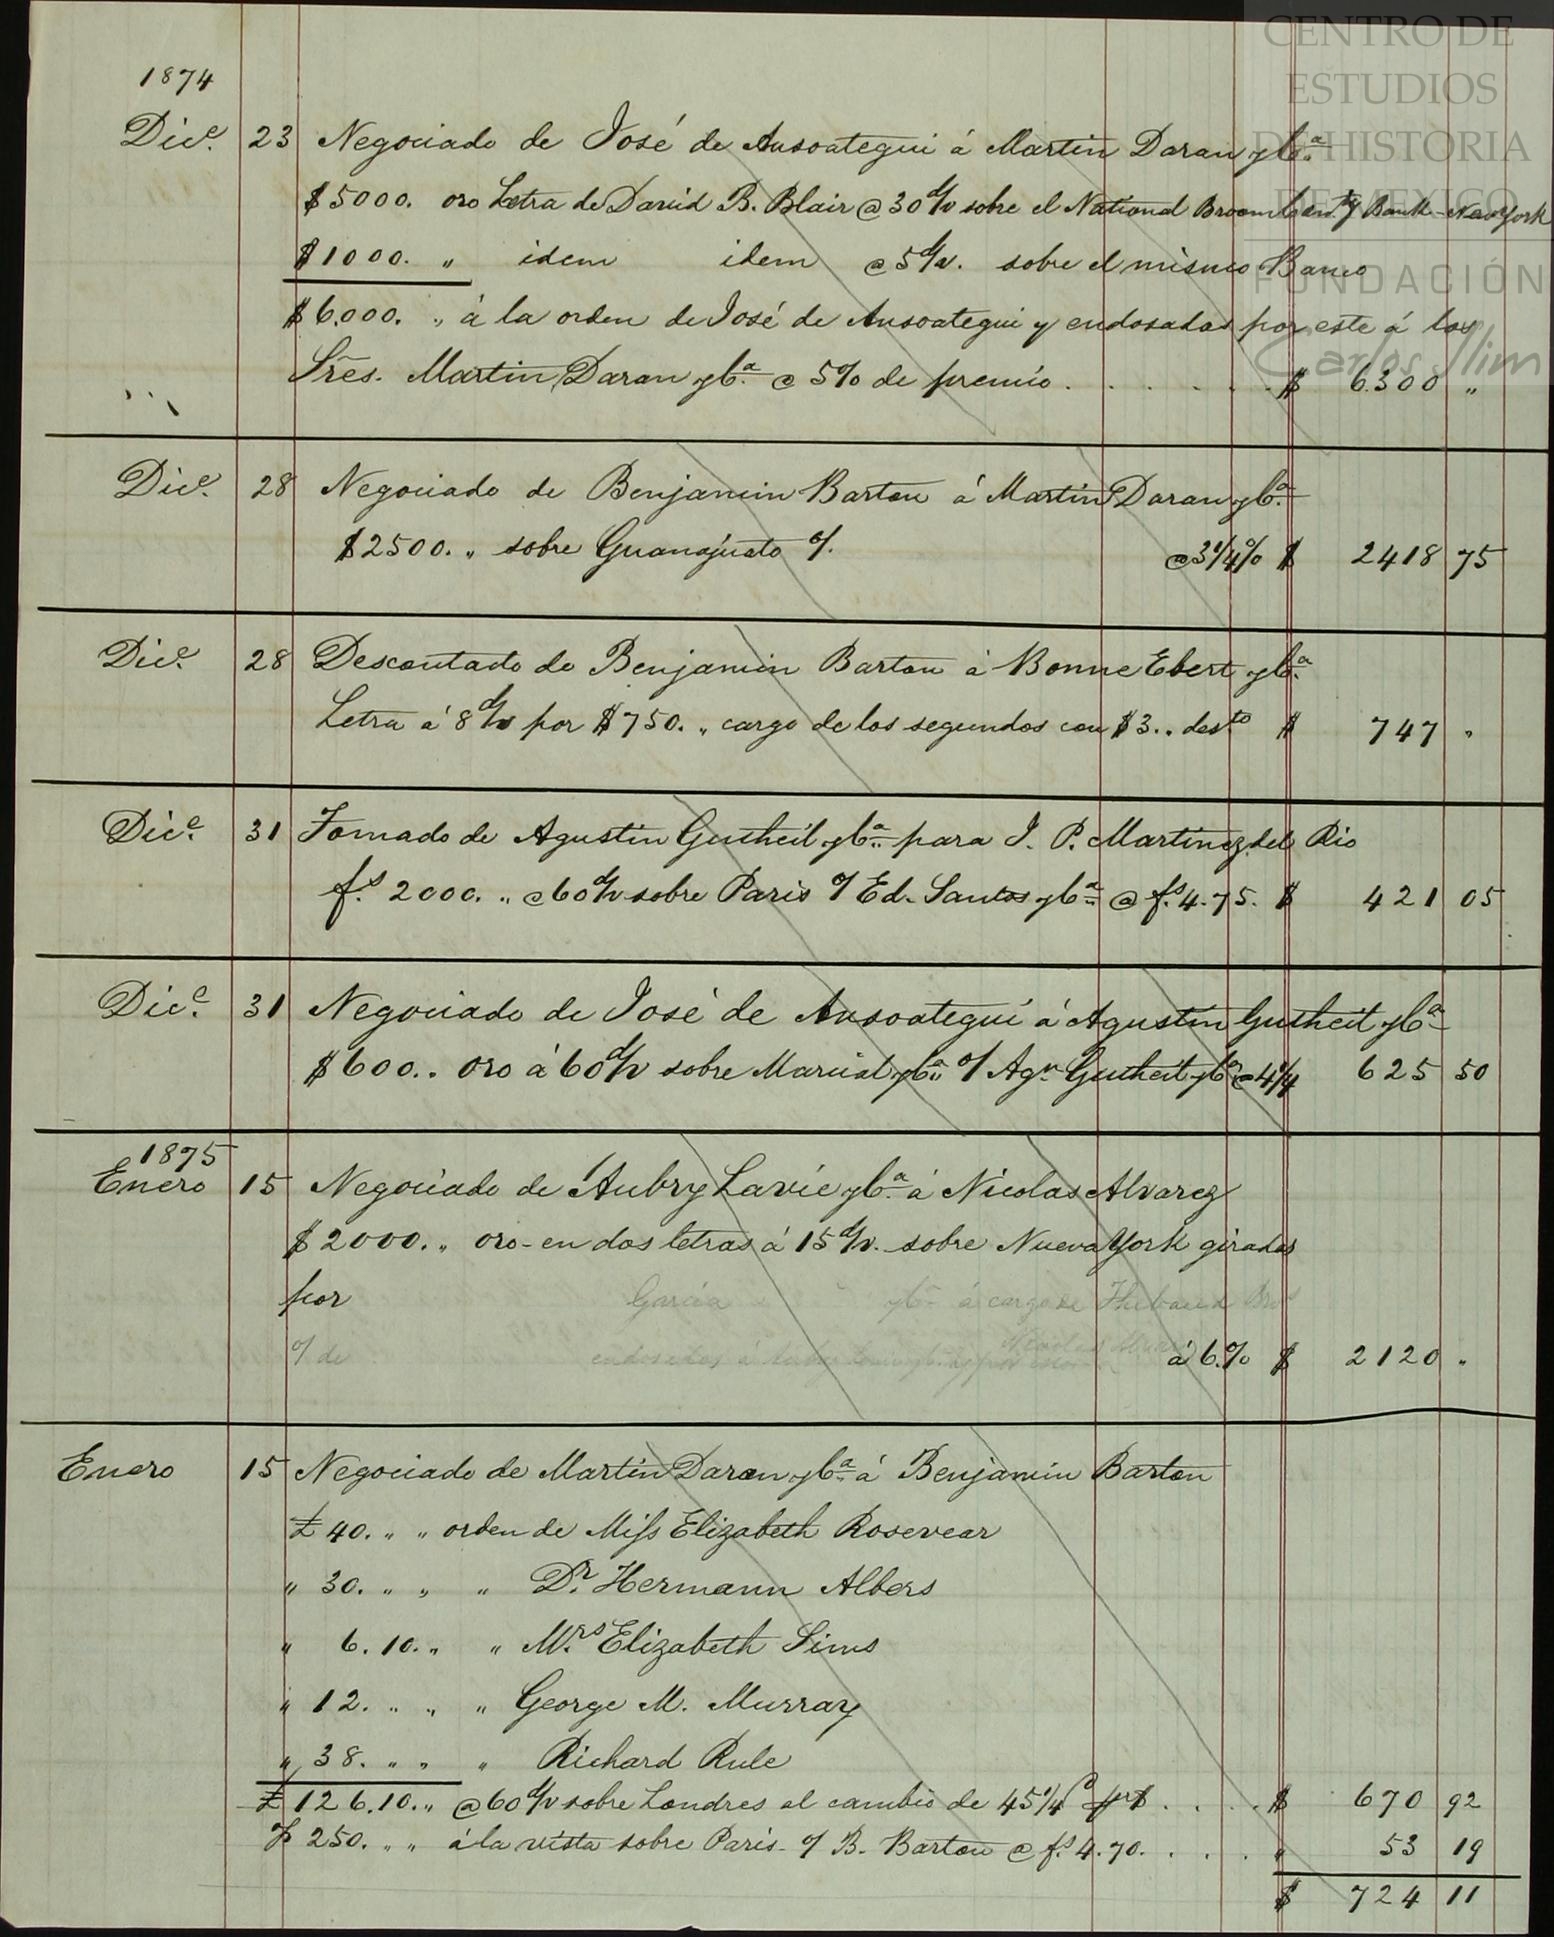 CENTRO DE
ESTUDIOS
DE HISTORIA
DE MEXICO
FUNDACIÓN
Carlos Slim
1874
Dice. 23 Negociado de José de Ansoategui á Martin Daran y Ca.
$5000. oro Letra de David B. Blair @ 30 d/v sobre el National Bank-New York
$1000. „ idem idem @ 5 d/v. sobre el mismo Banco
$6.000. „ á la orden de José de Ansoategui y endosadas por este á los
Sres. Martin Daran y Ca. @ 5% de premio . . . . . . $ 6.300 „
Dice. 28 Negociado de Benjamin Barton á Martin Daran y Ca.
$2500. „ sobre Guanajuato o/. @ 3 1/4 % $ 2418 75
Dice. 28 Descontado de Benjamin Barton á Bonne Ebert y Ca.
Letra á 8 d/v por $750. „ cargo de los segundos con $3.. desto. $ 747 „
Dice. 31 Tomado de Agustin Gutheil y Ca. para J. P. Martinez del Rio
fs. 2000. „ @ 60 d/v sobre Paris o/ Ed. Santos y Ca. @ fs. 4.75. $ 421 05
Dice. 31 Negociado de José de Ansoategui á Agustin Gutheil y Ca.
$600.. oro á 60 d/v sobre Marcial y Ca. o/ Agn. Gutheil y Ca. @ 4 1/4 625 50
1875
Enero 15 Negociado de Aubry Lavie y Ca. á Nicolas Alvarez
$2000. „ oro- en dos letras á 15 d/v. sobre Nueva York giradas
por Garcia y Ca. á cargo de Thebaud Bros
o/ de endosadas á á 6.% $ 2120 „
Enero 15 Negociado de Martin Daran y Ca. á Benjamin Barton
£ 40. „ „ orden de Miss Elizabeth Rosevear
„ 30. „ „ „ Dr. Hermann Albers
„ 6. 10. „ „ Mrs. Elizabeth Sims
„ 12. „ „ „ George M. Murray
„ 38. „ „ „ Richard Rule
£ 126.10. „ @ 60 d/v sobre Londres al cambio de 45 1/4 d pr $ . . . . $ 670 92
F 250. „ „ á la vista sobre Paris- o/ B. Barton @ fs. 4.70. . . . . „ 53 19
$ 724 11